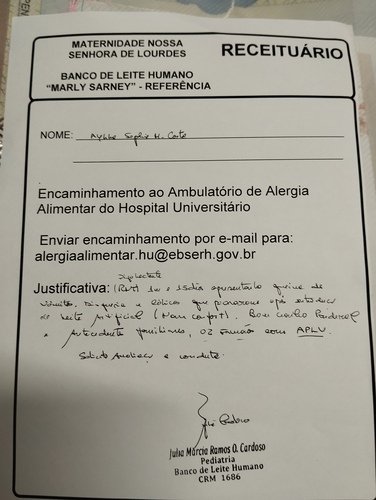 MATERNIDADE NOSSA
SENHORA DE LOURDES
RECEITUÁRIO
BANCO DE LEITE HUMANO
“MARLY SARNEY” - REFERÊNCIA
NOME: Sophie M. Costa
Encaminhamento ao Ambulatório de Alergia
Alimentar do Hospital Universitário
Enviar encaminhamento por e-mail para:
alergiaalimentar.hu@ebserh.gov.br
Justificativa: 1m e 15dias apresentando quadro de
e cólicas que após
de leite artificial (Nan confort). Bom
antecedente familiares, 02 com APLV.
Solicito Avaliação e conduta.
Julia Márcia Ramos O. Cardoso
Pediatria
Banco de Leite Humano
CRM 1686